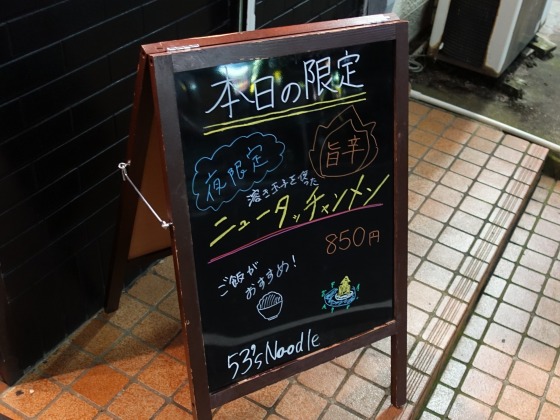 本日の限定
夜限定
旨辛
溶き玉子を使った
ニュータッチャンメン
850円
ご飯が
おすすめ!
53's Noodle